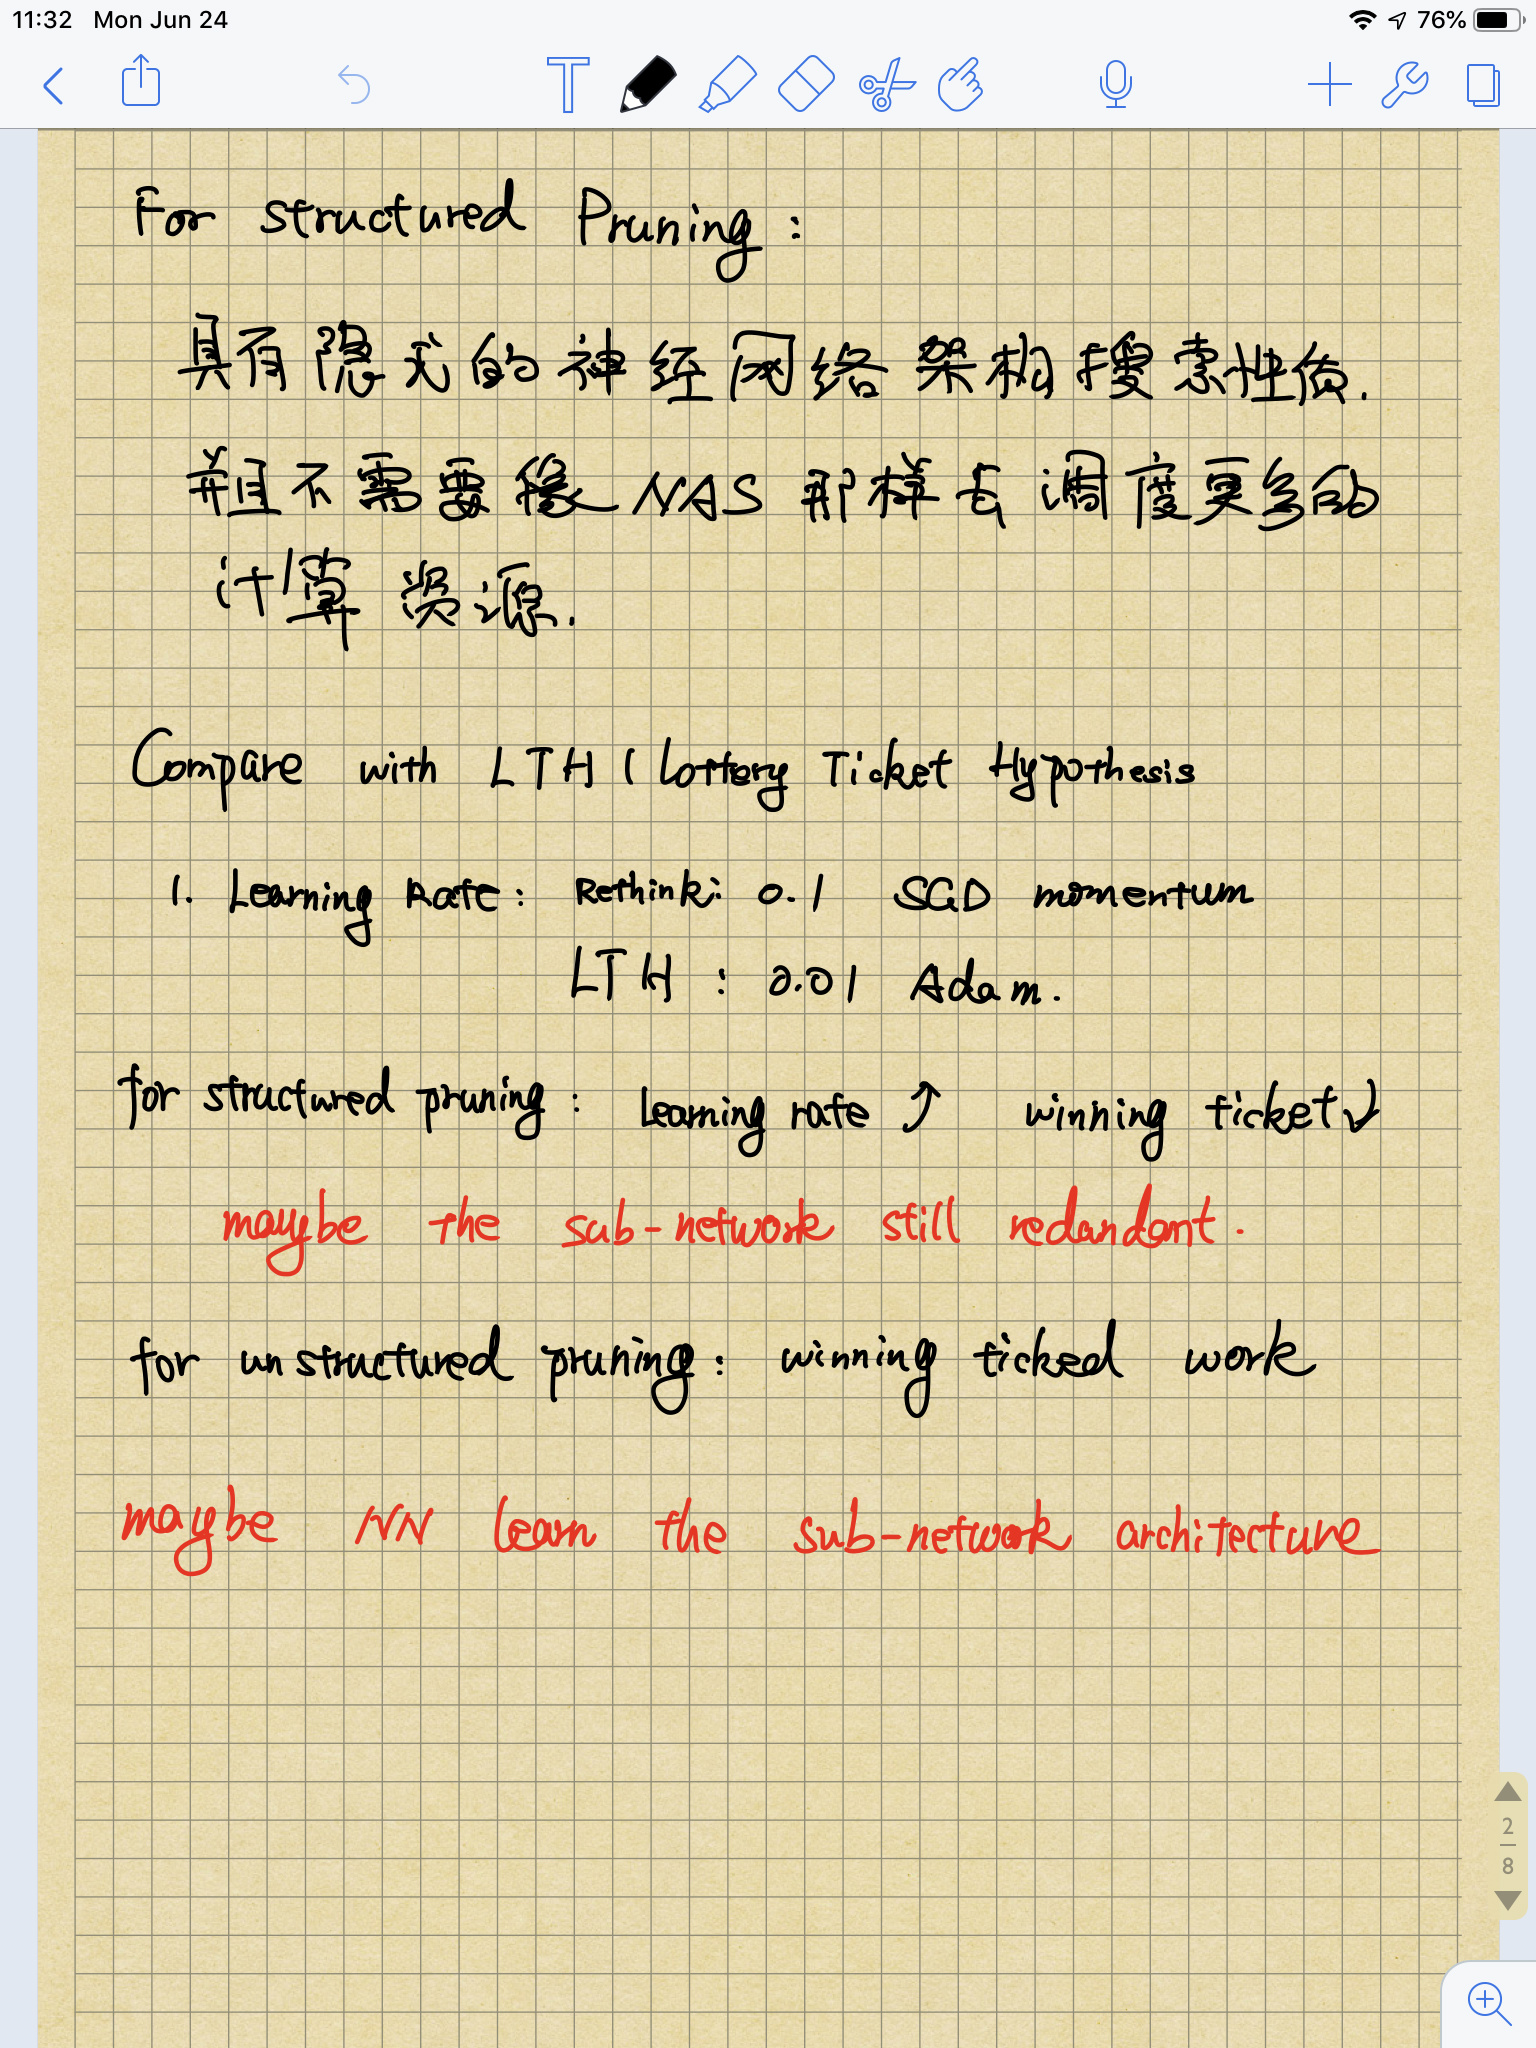 11:32 Mon Jun 24
76%
For structured Pruning:
具有隐式的神经网络架构搜索性质.
并且不需要像 NAS 那样去调度更多的
计算资源.
Compare with LTH ( Lottery Ticket Hypothesis
1. Learning Rate: Rethink: 0.1 SGD momentum
LTH : 0.01 Adam.
for structured pruning: Learning rate ↑ winning ticket ↓
maybe the sub-network still redandant.
for unstructured pruning: winning ticked work
maybe NN learn the sub-network architecture
2
8